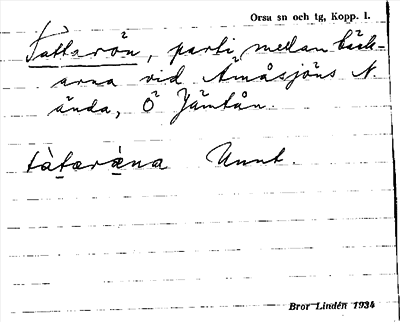 Orsa sn och tg, Kopp. l.
Tattarön, parti mellan bäck-
arna vid Åmåsjöns N.
ända, Ö Jämtån.
tàtaràna Unnt.
Bror Lindén 1934